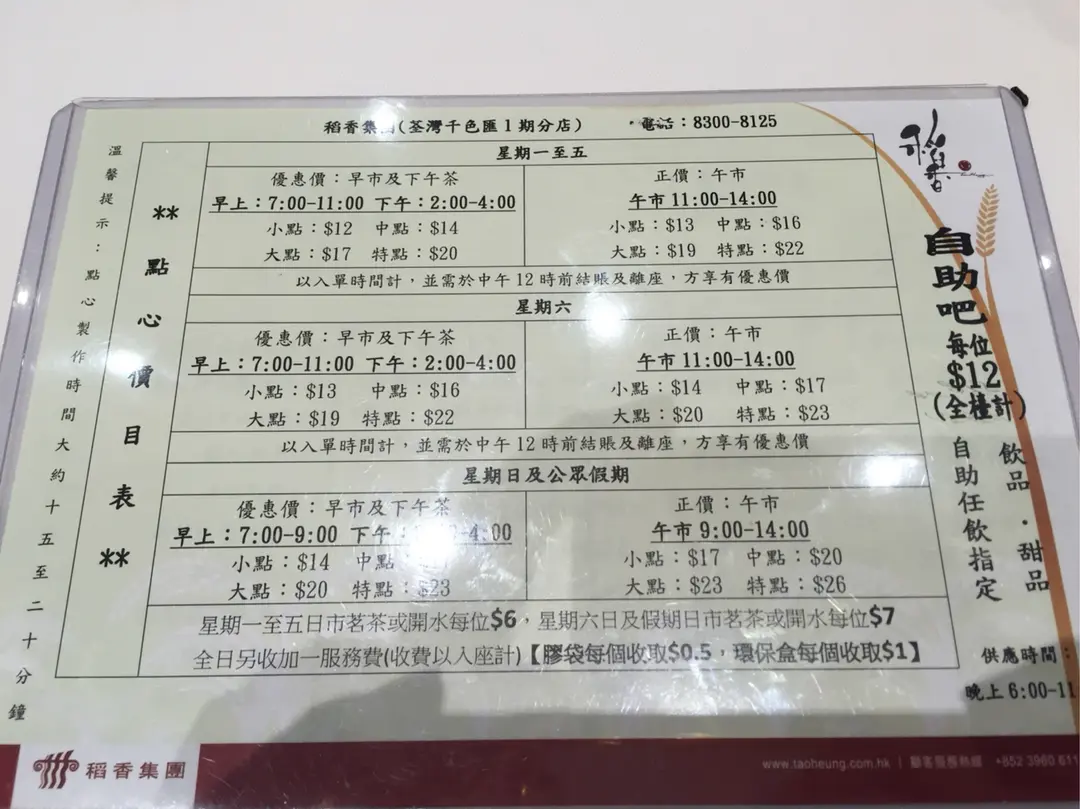 稻香集團(荃灣千色匯1期分店) 電話：8300-8125
溫馨提示：點心製作時間大約十五至二十分鐘
**點心價目表**
星期一至五
優惠價：早市及下午茶
早上：7:00-11:00 下午：2:00-4:00
小點：$12 中點：$14
大點：$17 特點：$20
正價：午市
午市 11:00-14:00
小點：$13 中點：$16
大點：$19 特點：$22
以入單時間計，並需於中午12時前結賬及離座，方享有優惠價
星期六
優惠價：早市及下午茶
早上：7:00-11:00 下午：2:00-4:00
小點：$13 中點：$16
大點：$19 特點：$22
正價：午市
午市 11:00-14:00
小點：$14 中點：$17
大點：$20 特點：$23
以入單時間計，並需於中午12時前結賬及離座，方享有優惠價
星期日及公眾假期
優惠價：早市及下午茶
早上：7:00-9:00 下午
小點：$14 中點
大點：$20 特點：$23
正價：午市
午市 9:00-14:00
小點：$17 中點：$20
大點：$23 特點：$26
星期一至五日市茗茶或開水每位$6，星期六日及假期日市茗茶或開水每位$7
全日另收加一服務費(收費以入座計)【膠袋每個收取$0.5，環保盒每個收取$1】
稻香
自助吧
每位
$12
(全檯計)
飲品．甜品
自助任飲指定
供應時間：
晚上 6:00-11
稻香集團
www.taoheung.com.hk | 顧客服務熱線 +852 3960 611